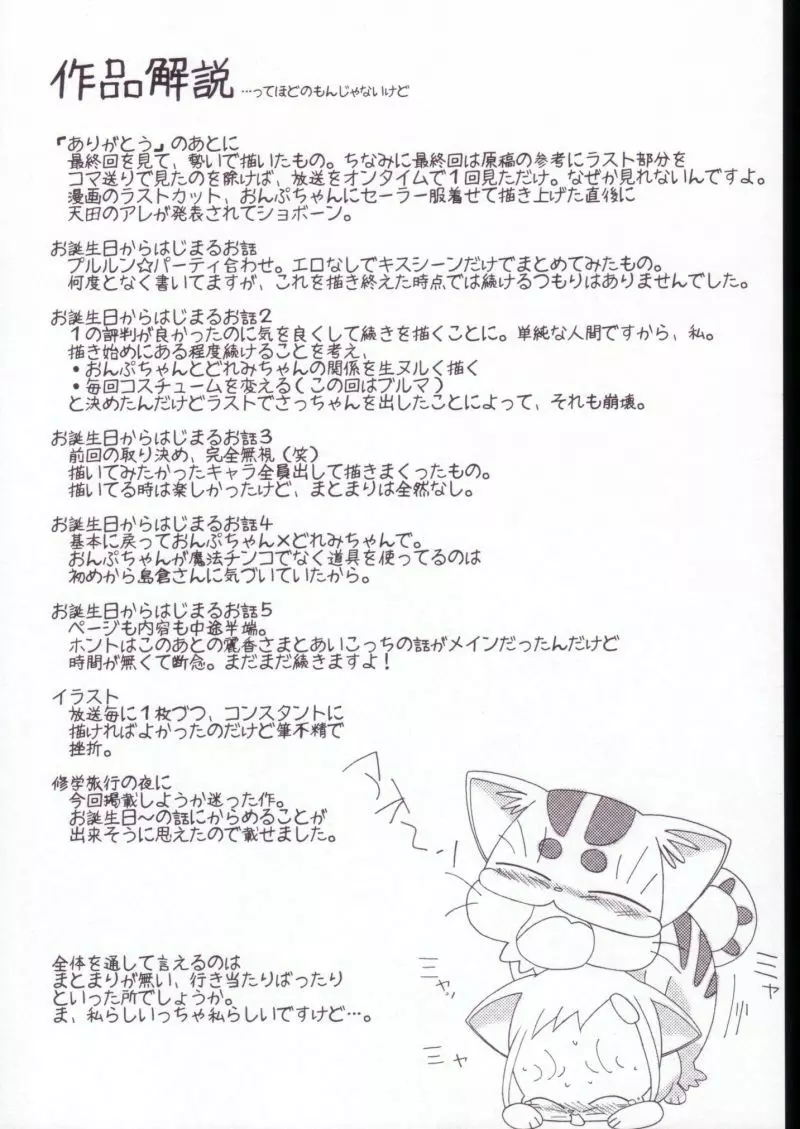 作品解説 …ってほどのもんじゃないけど
『ありがとう』のあとに
最終回を見て、勢いで描いたもの。ちなみに最終回は原稿の参考にラスト部分を
コマ送りで見たのを除けば、放送をオンタイムで1回見ただけ。なぜか見れないんですよ。
漫画のラストカット、おんぷちゃんにセーラー服着せて描き上げた直後に
天田のアレが発表されてショボーン。
お誕生日からはじまるお話
プルルン☆パーティ合わせ。エロなしでキスシーンだけでまとめてみたもの。
何度となく書いてますが、これを描き終えた時点では続けるつもりはありませんでした。
お誕生日からはじまるお話2
1の評判が良かったのに気を良くして続きを描くことに。単純な人間ですから、私。
描き始めにある程度続けることを考え、
・おんぷちゃんとどれみちゃんの関係を生ヌルく描く
・毎回コスチュームを変える(この回はブルマ)
と決めたんだけどラストでさっちゃんを出したことによって、それも崩壊。
お誕生日からはじまるお話3
前回の取り決め、完全無視(笑)
描いてみたかったキャラ全員出して描きまくったもの。
描いてる時は楽しかったけど、まとまりは全然なし。
お誕生日からはじまるお話4
基本に戻っておんぷちゃん×どれみちゃんで。
おんぷちゃんが魔法チンコでなく道具を使ってるのは
初めから島倉さんに気づいていたから。
お誕生日からはじまるお話5
ページも内容も中途半端。
ホントはこのあとの麗香さまとあいこっちの話がメインだったんだけど
時間が無くて断念。まだまだ続きますよ!
イラスト
放送毎に1枚づつ、コンスタントに
描ければよかったのだけど筆不精で
挫折。
修学旅行の夜に
今回掲載しようか迷った作。
お誕生日〜の話にからめることが
出来そうに思えたので載せました。
全体を通して言えるのは
まとまりが無い、行き当たりばったり
といった所でしょうか。
ま、私らしいっちゃ私らしいですけど…。
ミャ
ミャ
ミャ